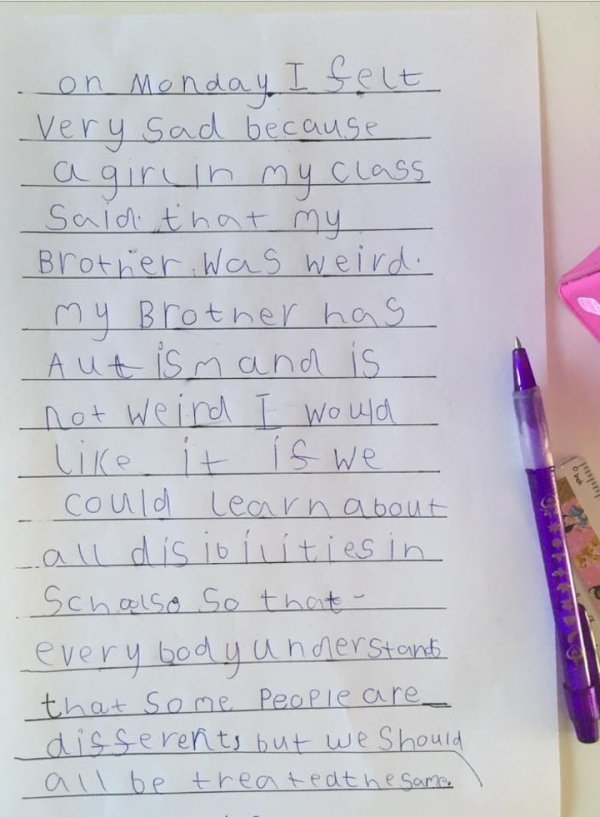 on Monday I felt
Very sad because
a girl in my class
Said that my
Brother was weird.
my Brother has
Autism and is
not weird I would
like it if we
could learn about
all disibilities in
Schoolso so that
everybody understands
that some People are
differents but we should
all be treated the same